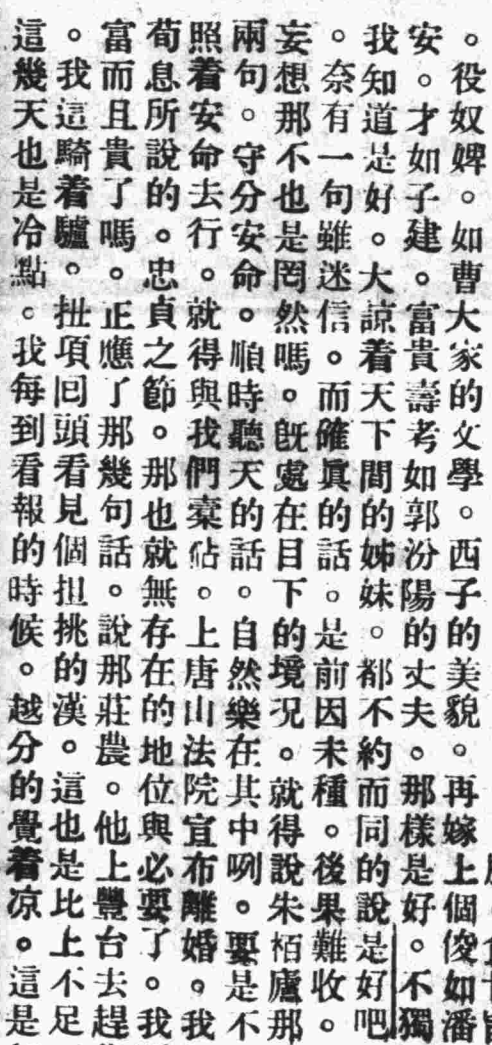 。役奴婢。如曹大家的文學。西子的美貌。再嫁上個俊如潘
安。才如子建。富貴壽考如郭汾陽的丈夫。那樣是好。不獨
我知道是好。大諒着天下間的姊妹。都不約而同的說是好吧
。奈有一句雖迷信。而確眞的話。是前因未種。後果難收。
妄想那不也是罔然嗎。旣處在目下的境况。就得說朱栢廬那
兩句。守分安命。順時聽天的話。自然樂在其中咧。要是不
照着安命去行。就得與我們棄砧。上唐山法院宣布離婚。我
荀息所說的。忠貞之節。那也就無存在的地位與必要了。我
富而且貴了嗎。正應了那幾句話。說那莊農。他上豐台去趕
。我這騎着驢。扯項囘頭看見個担挑的漢。這也是比上不足
這幾天也是冷點。我每到看報的時候。越分的覺着凉。這是